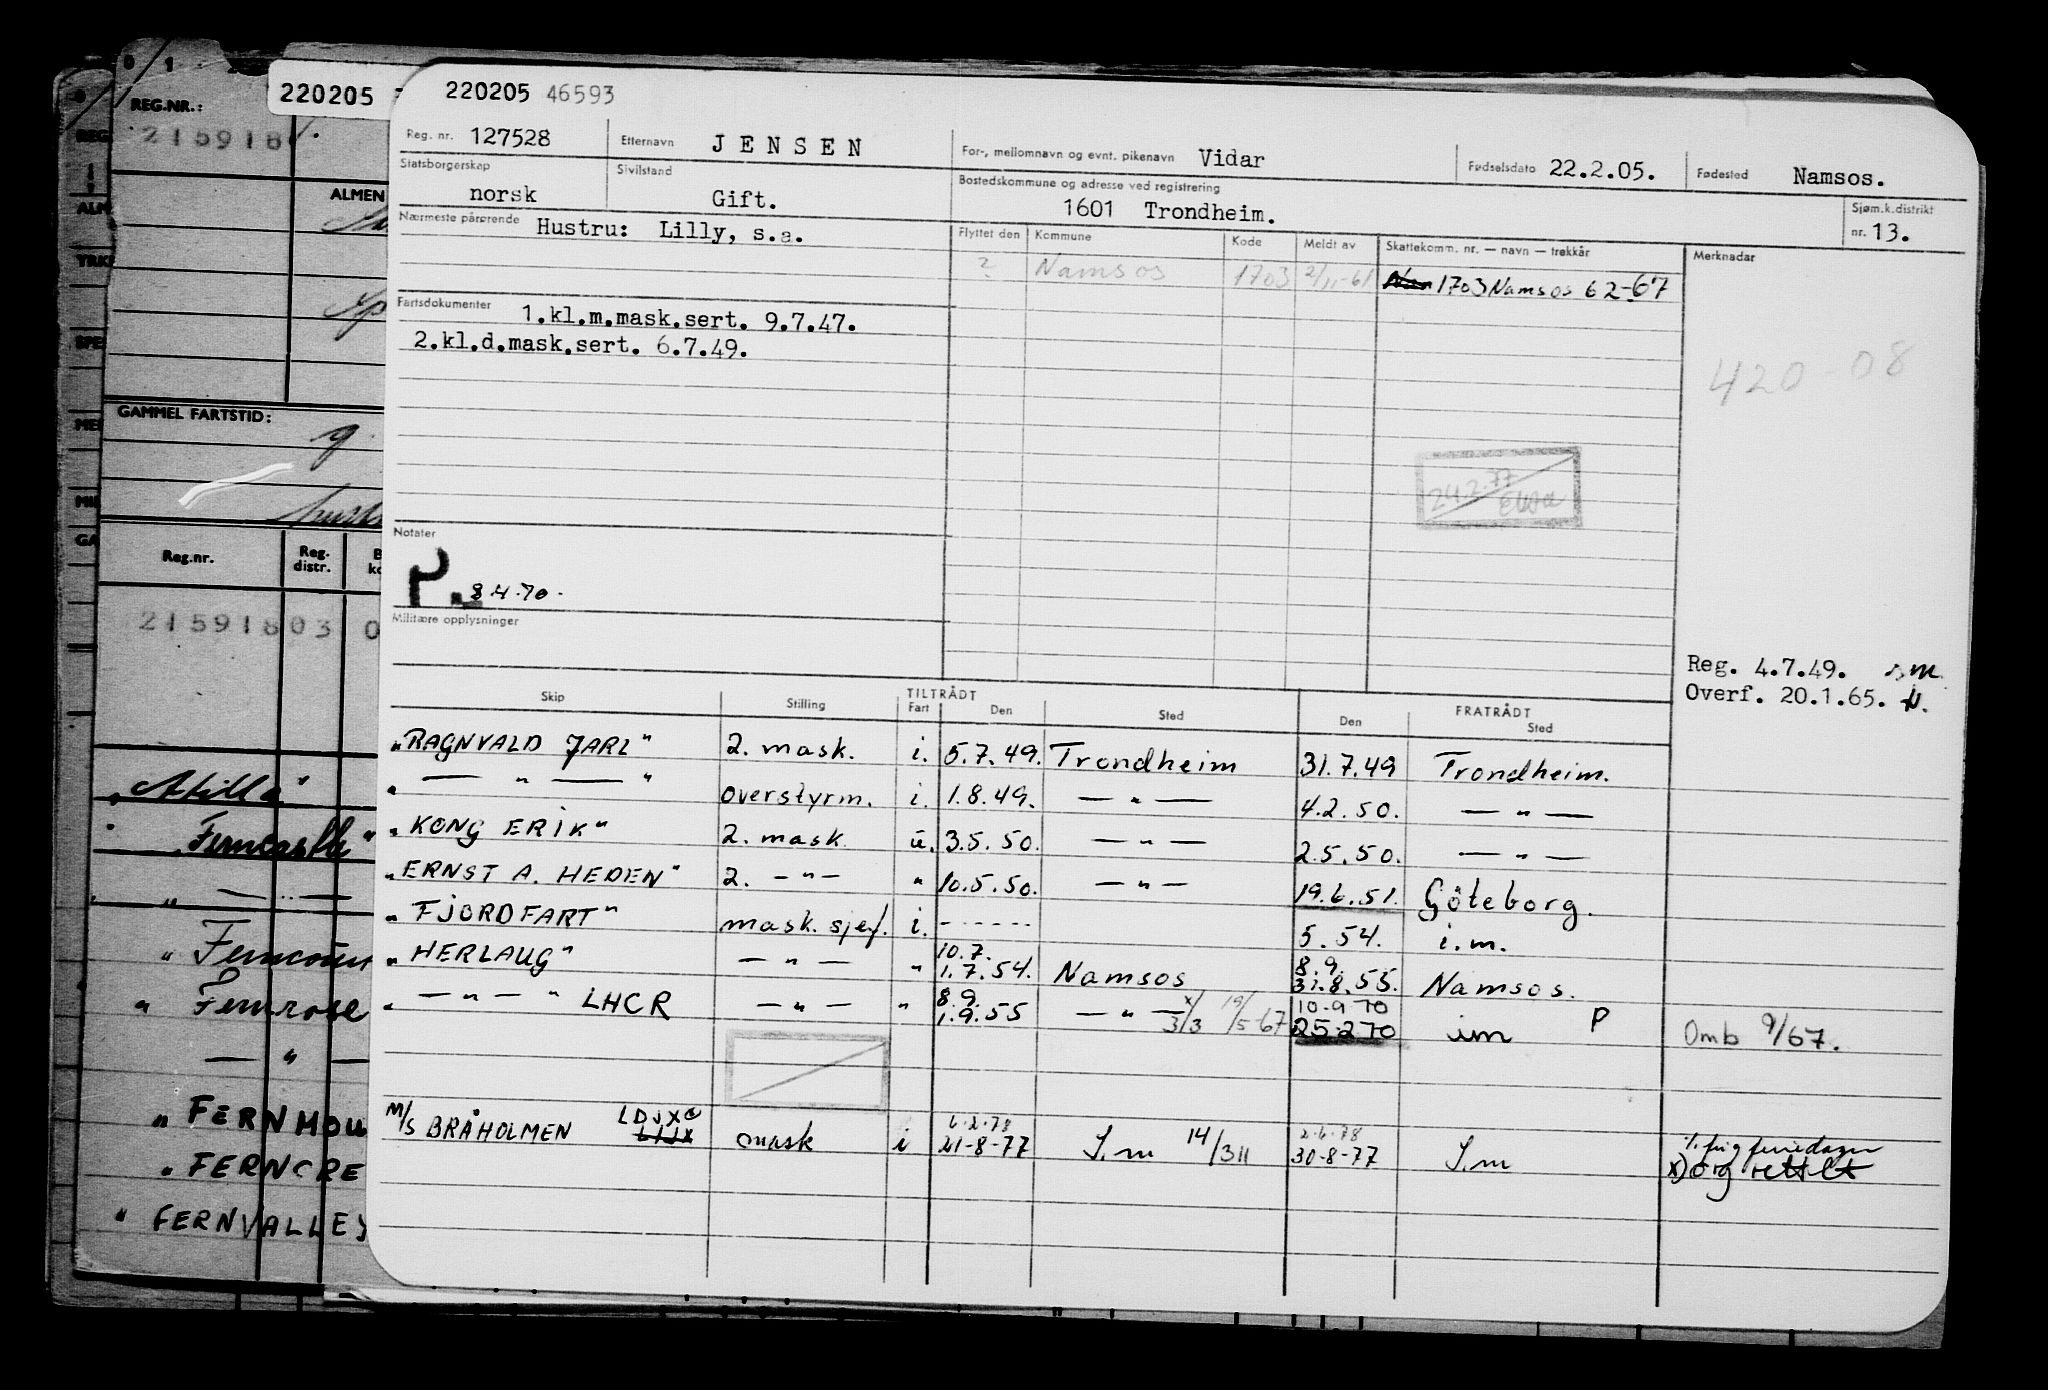 0 1
REG.NR.:
2 1 5 9 1 8
ALMEN
GAMMEL FARTSTID:
Reg.nr.
Reg. distr.
2 1 5 9 1 8 0 3 0
"Atilla"
"Ferncastle"
" — " —
" Ferncourt
" Fernrose
— " —
" FERNMOU
" FERNCRE
" FERNVALLEY
220205
220205 46593
Reg. nr. 127528 Etternavn JENSEN For-, mellomnavn og evnt. pikenavn Vidar Fødselsdato 22.2.05. Fødested Namsos.
Statsborgerskap norsk Sivilstand Gift. Bostedskommune og adresse ved registrering 1601 Trondheim. Sjøm.k.distrikt nr. 13.
Nærmeste pårørende Hustru: Lilly, s.a.
Flyttet den Kommune Kode Meldt av Skattekomm. nr. — navn — trekkår Merknader
? Namsos 1703 2/11-61 1703 Namsos 62-67
Fartsdokumenter 1.kl.m.mask.sert. 9.7.47.
2.kl.d.mask.sert. 6.7.49.
420-08
24.2.77
Notater
P. 8.4.70.
Militære opplysninger
Reg. 4.7.49.
Overf. 20.1.65.
Skip Stilling TILTRÅDT Fart Den Sted FRATRÅDT Den Sted
"RAGNVALD JARL" 2. mask. i. 5.7.49. Trondheim 31.7.49 Trondheim.
" — " — " overstyrm. i. 1.8.49. — " — 4.2.50. — " —
"KONG ERIK" 2. mask. u. 3.5.50. — " — 2.5.50. — " —
"ERNST A. HEDEN" 2. — " — " 10.5.50. — " — 19.6.51. Göteborg.
"FJORDFART" mask. sjef. i. - - - - - - 5.54. i.m.
"HERLAUG" — " — " 10.7. 1.7.54. Namsos 8.9. 31.8.55. Namsos.
" — " — " LHCR — " — " 8.9. 1.9.55 — " — x 3/3 19/5-67 10-9-70 25-2-70 im P Omb 9/67.
M/S BRÅHOLMEN LDJX mask i 6-2-78 21-8-77 I.m 14/311 2-6-78 30-8-77 I.m
x)